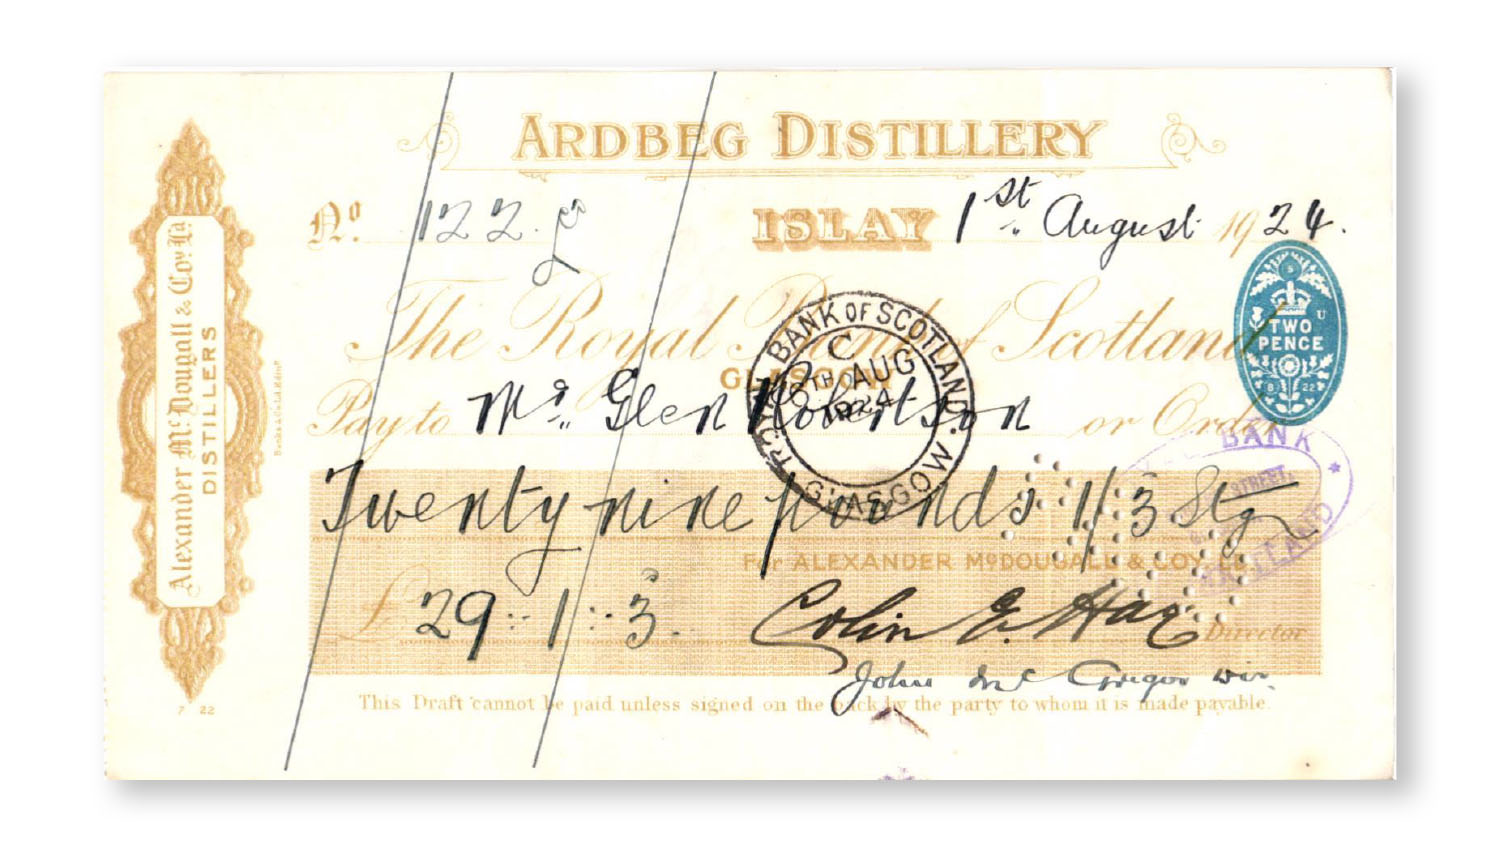 ARDBEG DISTILLERY
No. 122.
ISLAY 1st August 1924.
The Royal Bank of Scotland
GLASGOW
Pay to Mr. Glen Robertson or Order
Twenty nine pounds 1/3 Stg
For ALEXANDER McDOUGALL & COY. LD.
£ 29 : 1 : 3.
Colin E. Hay Director
John McGregor
This Draft cannot be paid unless signed on the back by the party to whom it is made payable.
Alexander McDougall & Coy. Ld.
DISTILLERS
7 22
TWO
PENCE
U
8 22
ROYAL BANK OF SCOTLAND. GLASGOW
C
AUG
1924
BANK
STREET.